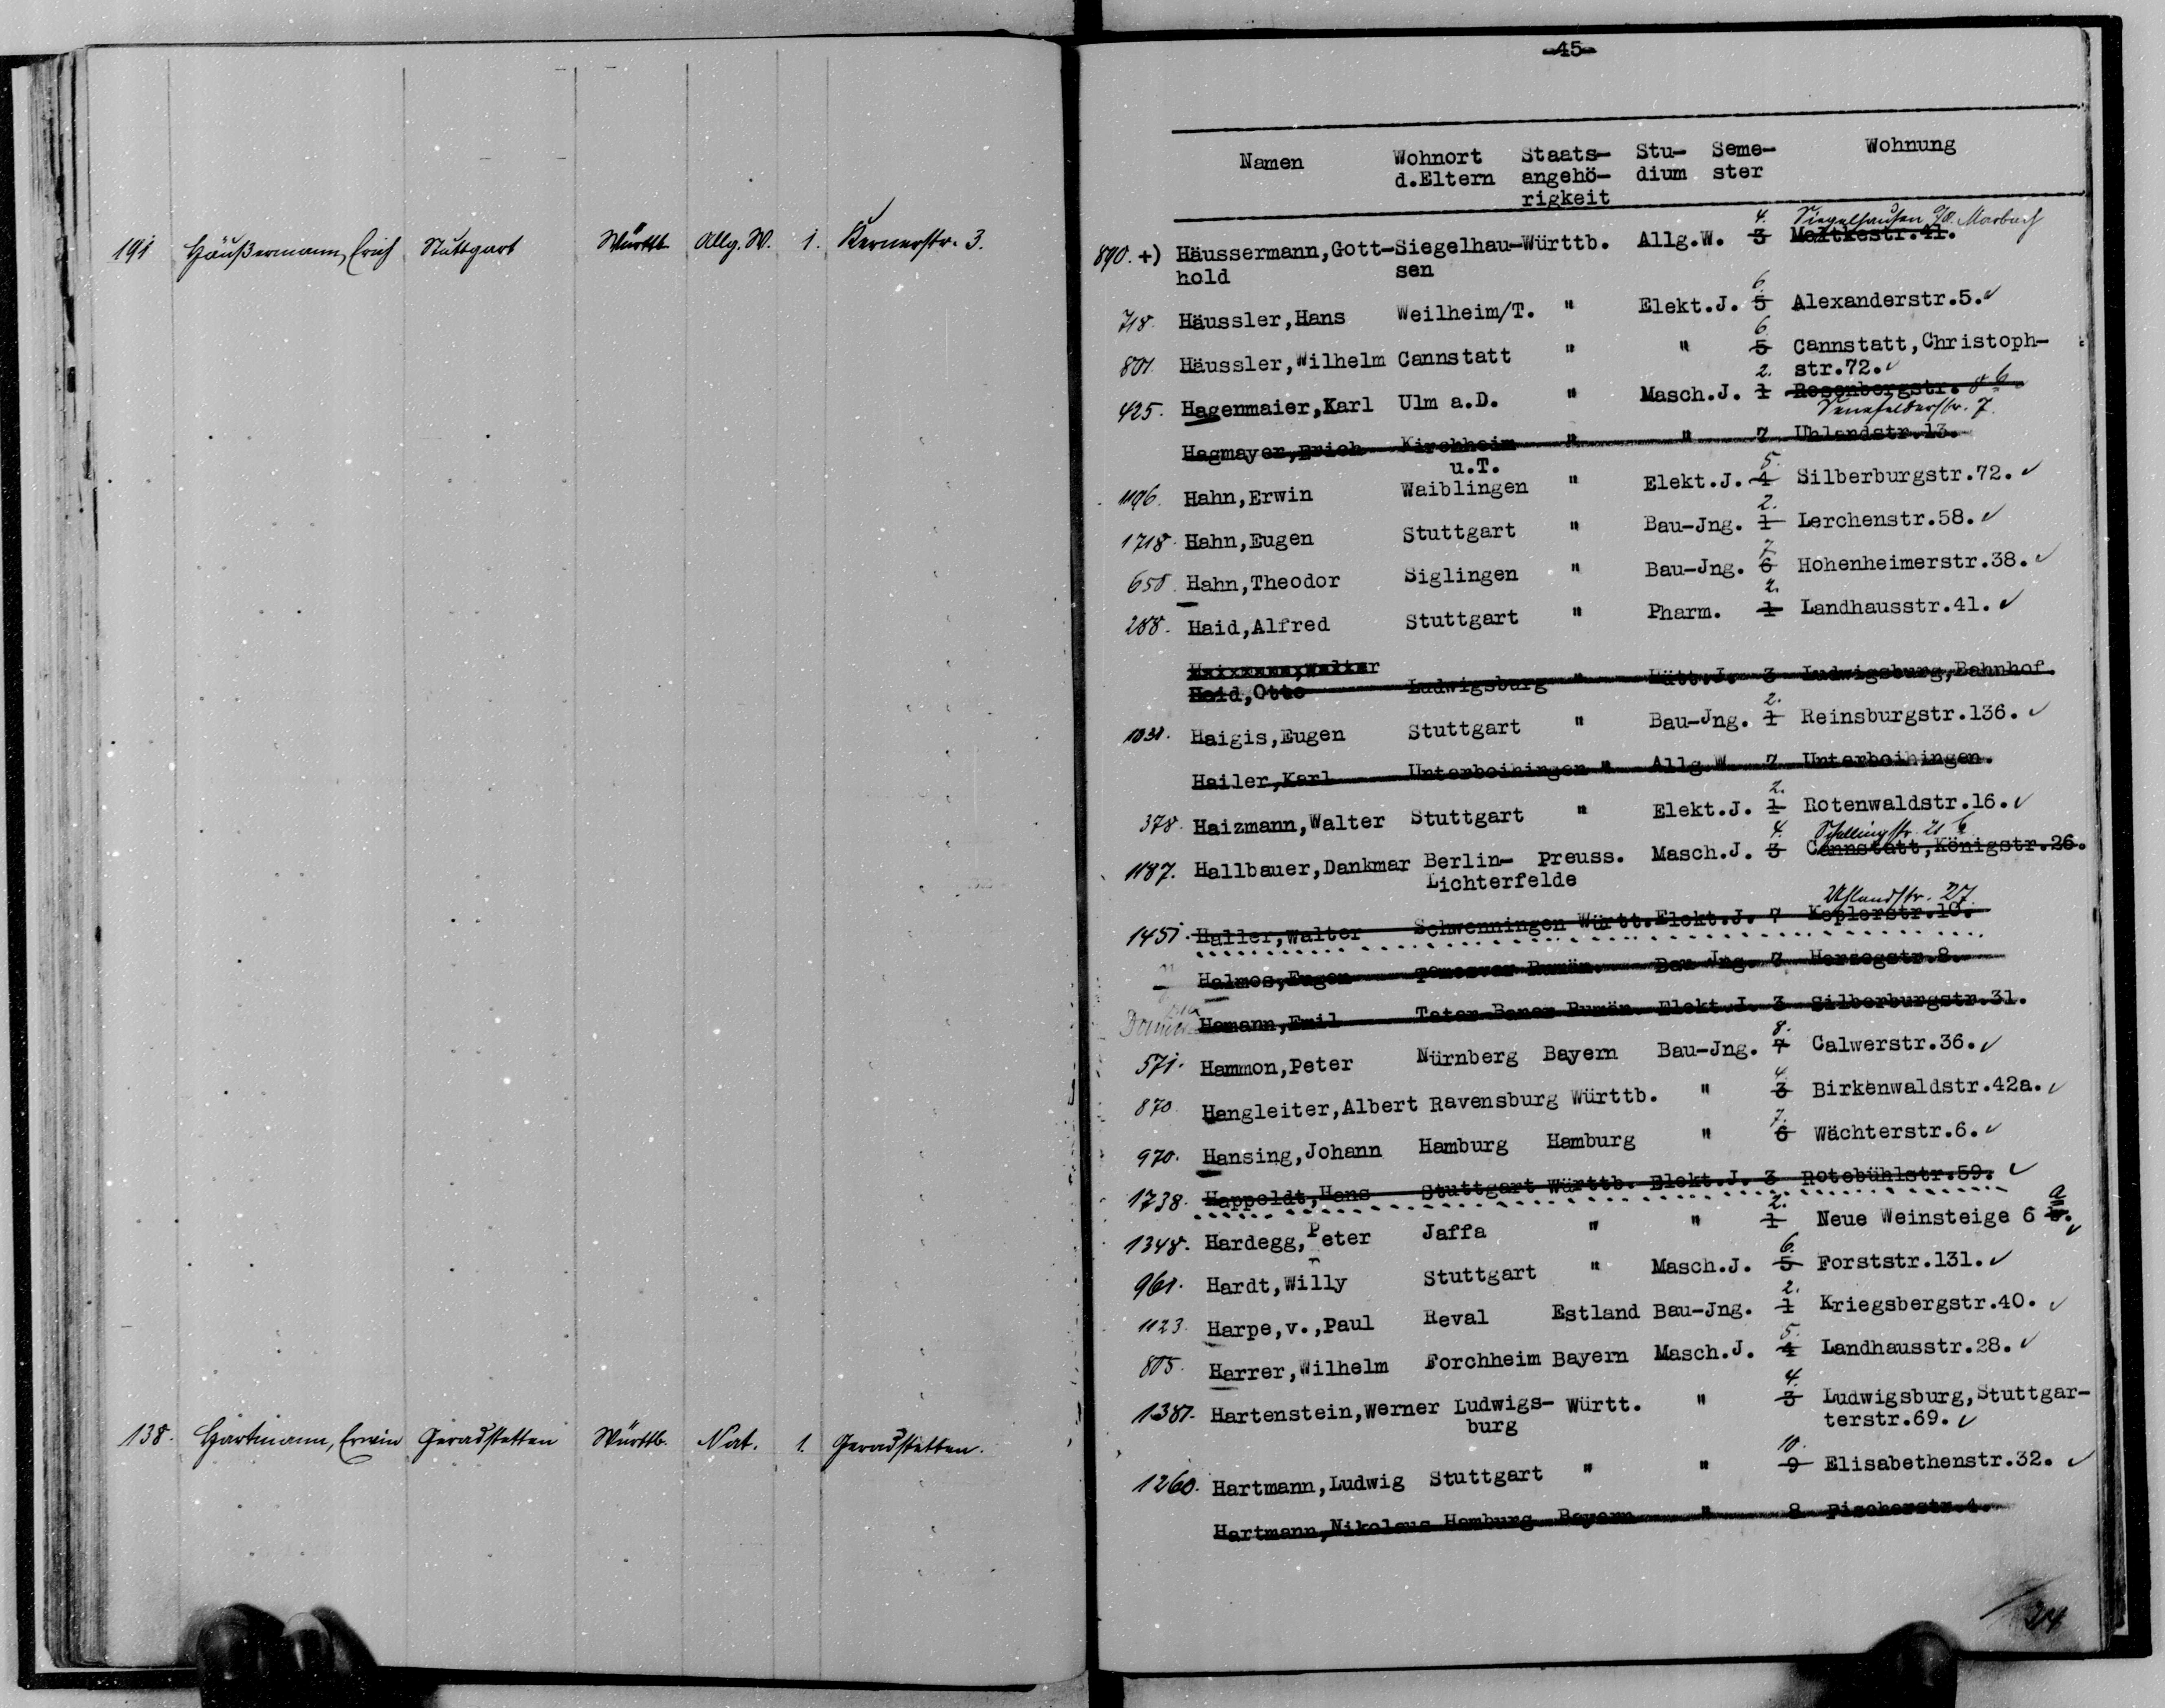 191 Häußermann, Erich Stuttgart Württb. Allg. W. 1. Kernerstr. 3.
138. Hartmann, Erwin Geradstetten Württb. Nat. 1. Geradstetten.
-45-
Namen Wohnort Staats- Stu- Seme- Wohnung
d.Eltern angehö- dium ster
rigkeit
4. Siegelhausen O/A. Marbach
890. +) Häussermann,Gott- Siegelhau- Württb. Allg.W. 3 Moltkestr.41.
hold sen
6.
718. Häussler,Hans Weilheim/T. " Elekt.J. 5 Alexanderstr.5. ✓
6.
801. Häussler,Wilhelm Cannstatt " " 5 Cannstatt,Christoph-
2. str.72. ✓
425. Hagenmaier,Karl Ulm a.D. " Masch.J. 1 Rosenbergstr. 86
Senefelderstr. 7.
Hagmayer,Erich Kirchheim " " 7 Uhlandstr.13.
u.T. 5.
1196. Hahn,Erwin Waiblingen " Elekt.J. 4 Silberburgstr.72. ✓
2.
1718. Hahn,Eugen Stuttgart " Bau-Jng. 1 Lerchenstr.58. ✓
7.
658. Hahn,Theodor Siglingen " Bau-Jng. 6 Hohenheimerstr.38. ✓
2.
288. Haid,Alfred Stuttgart " Pharm. 1 Landhausstr.41. ✓
Haid,Otto Ludwigsburg " Hütt.J. 3 Ludwigsburg,Bahnhof.
2.
1031. Haigis,Eugen Stuttgart " Bau-Jng. 1 Reinsburgstr.136. ✓
Hailer,Karl Unterboihingen " Allg.W. 7 Unterboihingen.
2.
378. Haizmann,Walter Stuttgart " Elekt.J. 1 Rotenwaldstr.16. ✓
4. Schellingstr. 21
1187. Hallbauer,Dankmar Berlin- Preuss. Masch.J. 3 Cannstatt,Königstr.26.
Lichterfelde
Uhlandstr. 27.
1451. Haller,Walter Schwenningen Württ. Elekt.J. 7 Keplerstr.10.
Halmos,Eugen Temesvar Rumän. Bau Jng. 7 Herzogstr.8.
Hamann,Emil Rumän. Elekt.J. 3 Silberburgstr.31.
8.
571. Hammon,Peter Nürnberg Bayern Bau-Jng. 7 Calwerstr.36. ✓
4.
870. Hangleiter,Albert Ravensburg Württb. " 3 Birkenwaldstr.42a. ✓
7.
970. Hansing,Johann Hamburg Hamburg " 6 Wächterstr.6. ✓
1738. Happoldt,Hans Stuttgart Württb. Elekt.J. 3 Rotebühlstr.59. ✓
2. a
1348. Hardegg,Peter Jaffa " " 1 Neue Weinsteige 6 ✓
6.
961. Hardt,Willy Stuttgart " Masch.J. 5 Forststr.131. ✓
2.
1123. Harpe,v.,Paul Reval Estland Bau-Jng. 1 Kriegsbergstr.40. ✓
5.
805. Harrer,Wilhelm Forchheim Bayern Masch.J. 4 Landhausstr.28. ✓
4.
1381. Hartenstein,Werner Ludwigs- Württ. " 3 Ludwigsburg,Stuttgar-
burg terstr.69. ✓
10.
1260. Hartmann,Ludwig Stuttgart " " 9 Elisabethenstr.32. ✓
Hartmann,Nikolaus Hamburg Bayern " 8 Fischerstr.4.
24